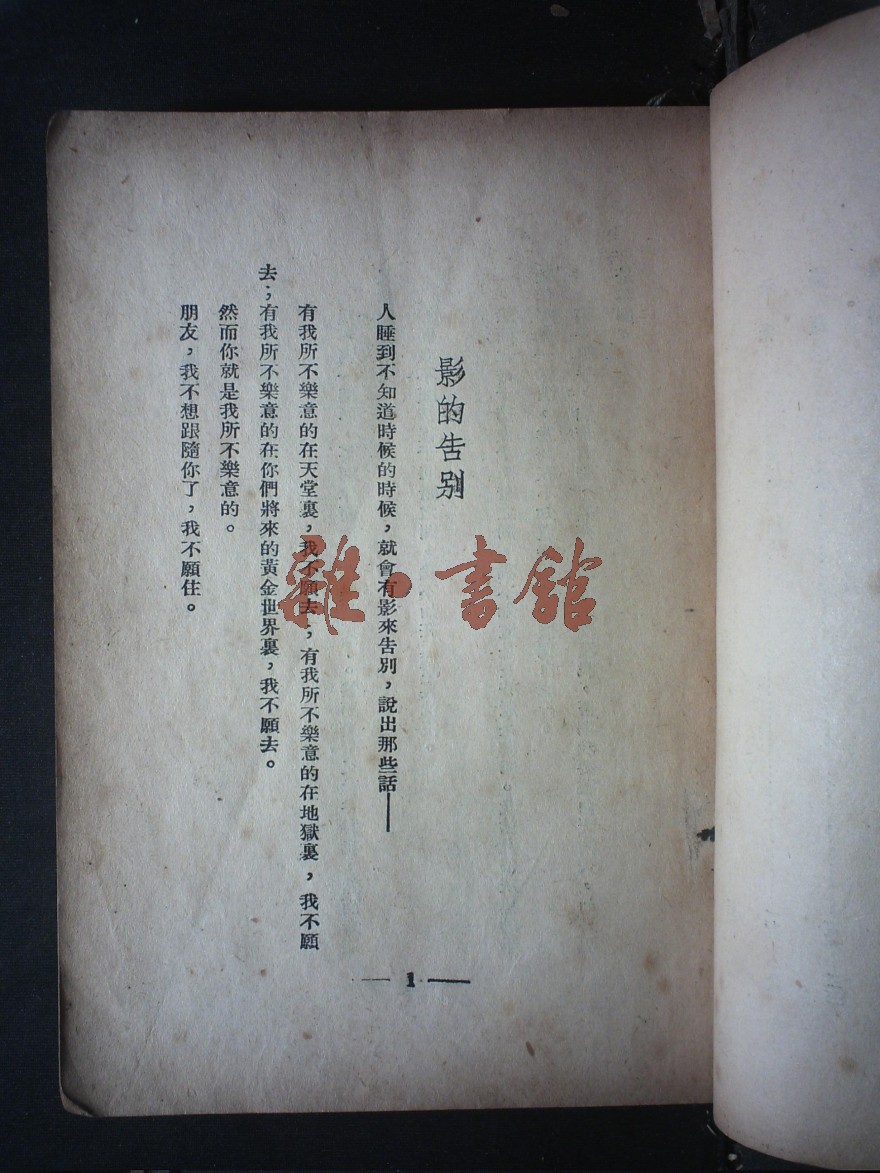 影的告別
人睡到不知道時候的時候，就會有影來告別，說出那些話——
有我所不樂意的在天堂裏，我不願去；有我所不樂意的在地獄裏，我不願
去；有我所不樂意的在你們將來的黃金世界裏，我不願去。
然而你就是我所不樂意的。
朋友，我不想跟隨你了，我不願住。
— 1 —
雜·書館